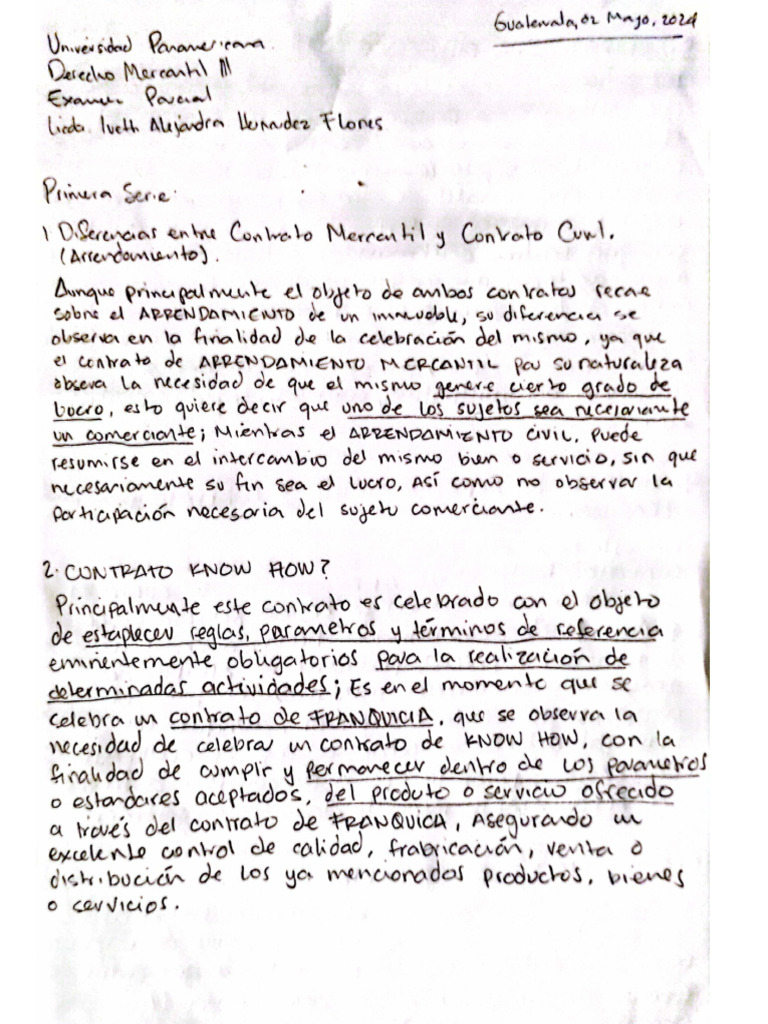 Guatemala, 02 Mayo, 2024
Universidad Panamericana.
Derecho Mercantil III
Examen Parcial
Licda. Iveth Alejandra Hernandez Flores
Primera Serie:
1 Diferencias entre Contrato Mercantil y Contrato Civil.
(Arrendamiento).
Aunque principalmente el objeto de ambos contratos recae
sobre el ARRENDAMIENTO de un inmueble, su diferencia se
observa en la finalidad de la celebración del mismo, ya que
el contrato de ARRENDAMIENTO MERCANTIL por su naturaleza
observa la necesidad de que el mismo genere cierto grado de
lucro, esto quiere decir que uno de los sujetos sea necesariante
un comerciante; Mientras el ARRENDAMIENTO CIVIL, Puede
resumirse en el intercambio del mismo bien o servicio, sin que
necesariamente su fin sea el lucro, Así como no observar la
participación necesaria del sujeto comerciante.
2. CONTRATO KNOW HOW?
Principalmente este contrato es celebrado con el objeto
de estaplecer reglas, parametros y términos de referencia
eminentemente obligatorios para la realización de
determinadas actividades; Es en el momento que se
celebra un contrato de FRANQUICIA, que se observa la
necesidad de celebra un contrato de KNOW HOW, con la
finalidad de cumplir y permanecer dentro de los parametros
o estandares aceptados, del produto o servicio ofrecido
a través del contrato de FRANQUICA, Asegurando un
excelente control de calidad, frabricación, venta o
distribución de los ya mencionados productos, bienes
o servicios.